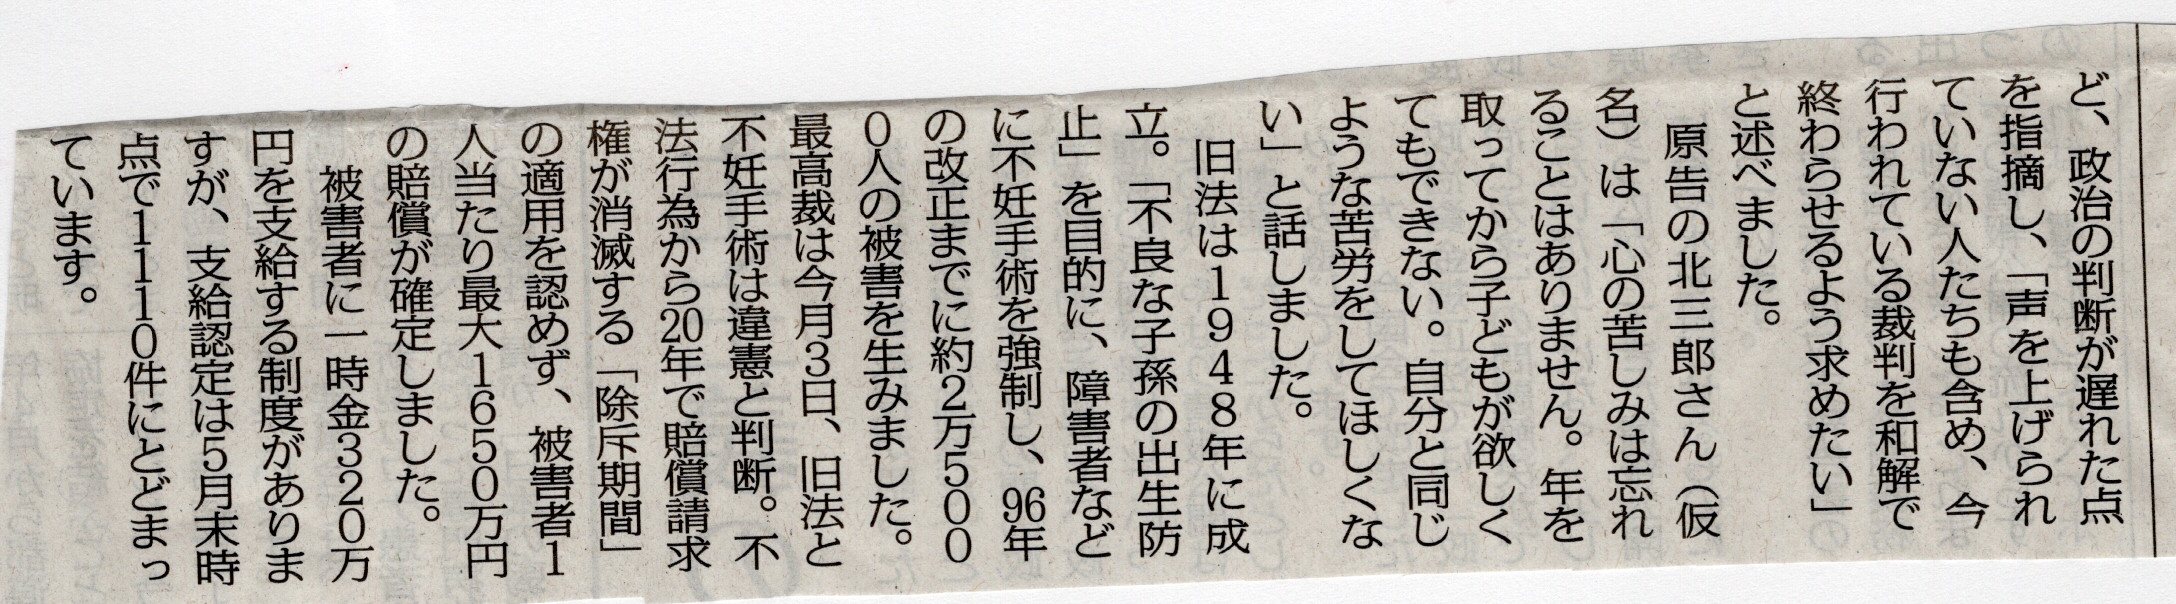 ど、政治の判断が遅れた点
を指摘し、「声を上げられ
ていない人たちも含め、今
行われている裁判を和解で
終わらせるよう求めたい」
と述べました。
原告の北三郎さん（仮
名）は「心の苦しみは忘れ
ることはありません。年を
取ってから子どもが欲しく
てもできない。自分と同じ
ような苦労をしてほしくな
い」と話しました。
旧法は1948年に成
立。「不良な子孫の出生防
止」を目的に、障害者など
に不妊手術を強制し、96年
の改正までに約2万500
0人の被害を生みました。
最高裁は今月3日、旧法と
不妊手術は違憲と判断。不
法行為から20年で賠償請求
権が消滅する「除斥期間」
の適用を認めず、被害者1
人当たり最大1650万円
の賠償が確定しました。
被害者に一時金320万
円を支給する制度がありま
すが、支給認定は5月末時
点で1110件にとどまっ
ています。